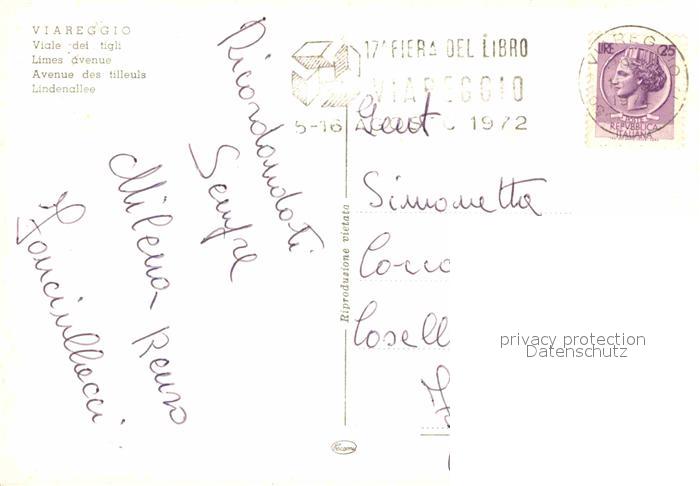 VIAREGGIO
Viale dei tigli
Limes avenue
Avenue des tilleuls
Lindenallee
17ª FIERA DEL LIBRO
VIAREGGIO
5-16 AGOSTO 1972
LIRE 25
POSTE
REPVBBLICA
ITALIANA
VIAREGGIO
Ricordandoti
Sempre
Milena Renzo
Gent
Simonetta
Riproduzione vietata
privacy protection
Datenschutz